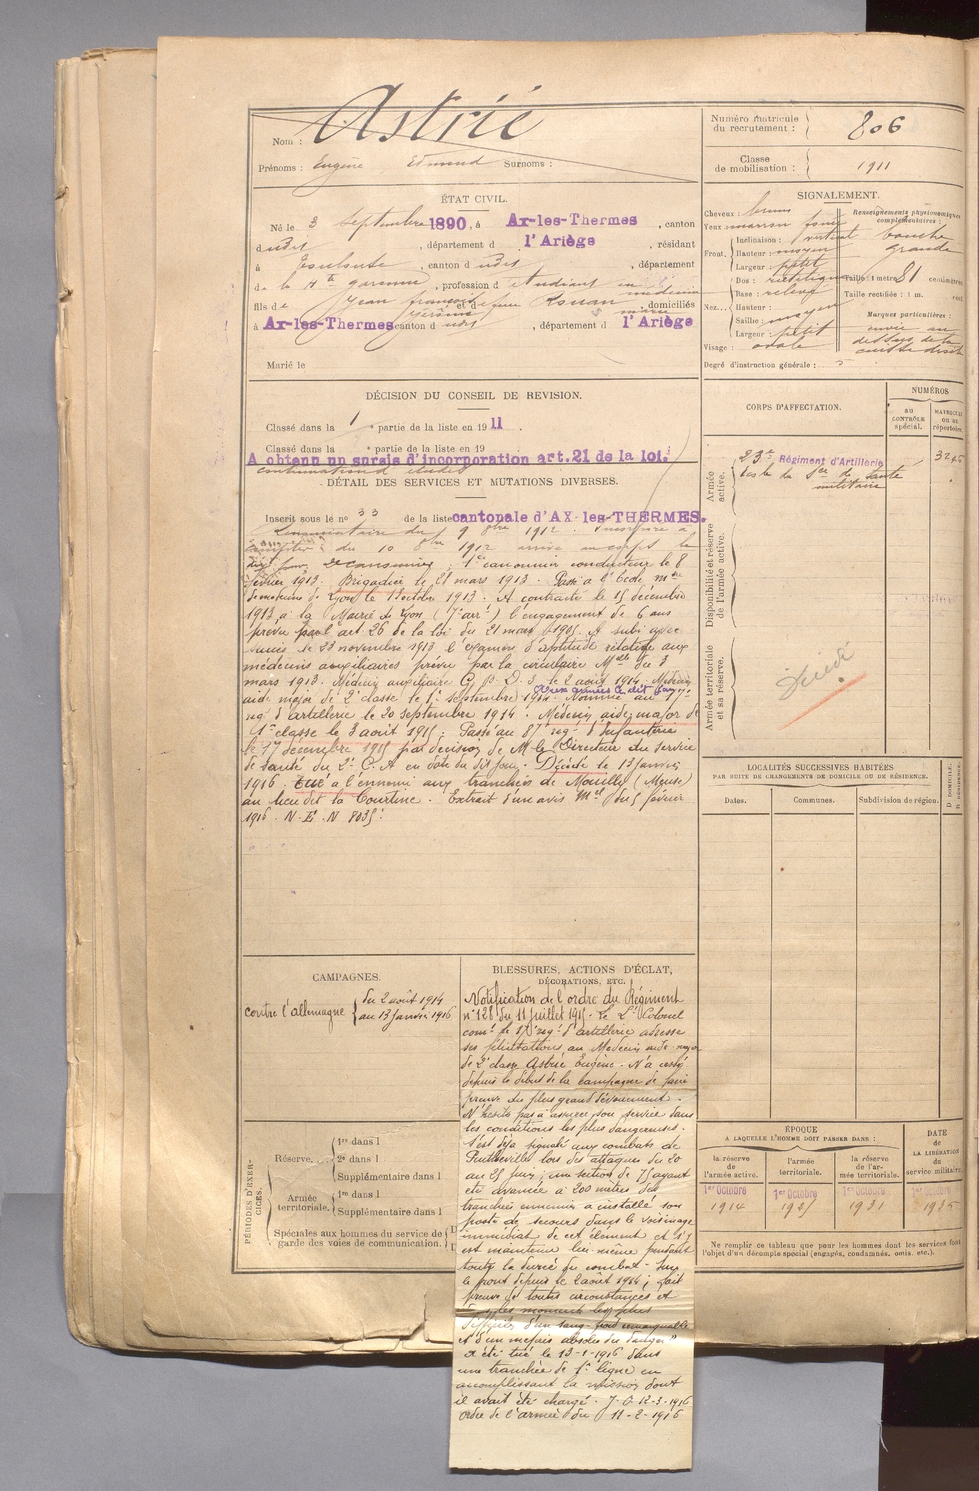 Nom : Astrié
Prénoms : Eugène Edmond Surnoms :
Numéro matricule du recrutement : 806
Classe de mobilisation : 1911
ÉTAT CIVIL.
Né le 3 septembre 1890, à Ax-les-Thermes, canton
dudit, département d l'Ariège, résidant
à Toulouse, canton d udit, département
de la Hte garonne, profession d etudiant en médecine
fils de Jean françois Jérôme et d e Rouan marie domiciliés
à Ax-les-Thermes canton d udit, département d l'Ariège
Marié le
SIGNALEMENT.
Cheveux : bruns
Yeux : marron foncé
Front. Inclinaison : vertical
Hauteur : moyen
Largeur : petit
Nez. Dos : rectiligne
Base : relevé
Hauteur :
Saillie : moyen
Largeur : petit
Visage : ovale
Renseignements physionomiques complémentaires :
bouche
grande
Taille : 1 mètre 81 centimètres
Taille rectifiée : 1 m. cent.
Marques particulières :
envie au
dessus de la
cuisse droite
Degré d'instruction générale : 5
DÉCISION DU CONSEIL DE REVISION.
Classé dans la 1e partie de la liste en 1911.
Classé dans la e partie de la liste en 19
A obtenu un sursis d'incorporation art.21 de la loi.
continuation d études
DÉTAIL DES SERVICES ET MUTATIONS DIVERSES.
Inscrit sous le no 33 de la liste cantonale d'AX-les-THERMES.
Renonciataire du 9 8bre 1912. Incorporé à
compter du 10 8bre 1912 arrivé au corps le
dit jour, 2e canonnier, 1er canonnier conducteur le 8
février 1913. Brigadier le 21 mars 1913. Passé à l'école mre
de médecine de Lyon le 1er octobre 1913. A contracté le 15 décembre
1913, à la Mairie de Lyon (7e arrt) l'engagement de 6 ans
prévu par l'art 26 de la loi du 21 mars 1905. A subi avec
succès le 23 novembre 1913 l'examen d'aptitude relatif aux
médecins auxiliaires prévu par la circulaire Mlle du 3
mars 1913. Médecin auxiliaire G. B. D. 3 le 2 août 1914. Médecin
aide major de 2e classe le 1er septembre 1914. Nommé au 17e
rég d'artillerie le 20 septembre 1914. Médecin aide major de
1e classe le 3 août 1915. Passé au 87e rég d'Infanterie
le 17 décembre 1915 par décision de M. le Directeur du service
de santé du 2e C. A en date du dit jour. Décédé le 13 janvier
1916. Tué à l'ennemi aux tranchées de Mouilly (Meuse)
au lieu dit la Tourtine. Extrait d'un avis Mel du 5 février
1916. N. E. N 8035.
CORPS D'AFFECTATION.
NUMÉROS
AU CONTRÔLE spécial.
MATRICULE OU AU répertoire.
Armée active.
23e Régiment d'Artillerie
Disponibilité et réserve de l'armée active.
Armée territoriale et sa réserve.
Décédé
LOCALITÉS SUCCESSIVES HABITÉES
PAR SUITE DE CHANGEMENTS DE DOMICILE OU DE RÉSIDENCE.
Dates.
Communes.
Subdivision de région.
D. DOMICILE. R. RÉSIDENCE.
CAMPAGNES.
contre l'allemagne { du 2 août 1914
au 13 Janvier 1916
BLESSURES, ACTIONS D'ÉCLAT,
DÉCORATIONS, ETC.
Notification de l'ordre du Régiment
n° 128 du 11 juillet 1915. Le Lt Colonel
comt le 17e régt d'artillerie adresse
ses félicitations au Medecin aide major
de 2e classe Astrié Eugène. N'a cessé
depuis le début de la campagne de faire
preuve du plus grand dévouement.
N'hésite pas à assurer son service dans
les conditions les plus dangereuses.
S'est déjà signalé aux combats de
lors des attaques du 20
au 25 Juin; une section de 75 ayant
été avancée à 200 mètres des
tranchées ennemies a installé son
poste de secours dans le voisinage
immédiat de cet élément et s'y
est maintenu lui-même pendant
toute la durée du combat. Sur
le front depuis le 2 août 1914; fait
preuve en toutes circonstances et
les moments les plus
d'un sang-froid remarquable
et d'un mépris absolu du danger"
A été tué le 13-1-1916 dans
une tranchée de 1e ligne en
accomplissant la mission dont
il avait été chargé. J. O. 12-3-1916
ordre de l'armée du 11-2-1916
PÉRIODES D'EXERCICES.
Réserve.
1re dans l
2e dans l
Supplémentaire dans l
Armée territoriale.
1re dans l
Supplémentaire dans l
Spéciales aux hommes du service de
garde des voies de communication.
ÉPOQUE
A LAQUELLE L'HOMME DOIT PASSER DANS :
la réserve de l'armée active.
l'armée territoriale.
la réserve de l'armée territoriale.
DATE de LA LIBÉRATION du service militaire.
1er Octobre 1er Octobre 1er Octobre 1er Octobre
1914 1925 1931
Ne remplir ce tableau que pour les hommes dont les services font
l'objet d'un décompte spécial (engagés, condamnés, omis, etc.).